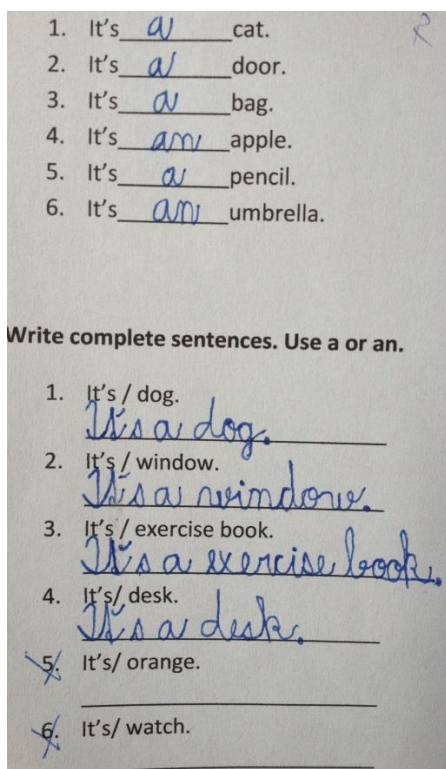 1. It's a cat.
2. It's a door.
3. It's a bag.
4. It's an apple.
5. It's a pencil.
6. It's an umbrella.
Write complete sentences. Use a or an.
1. It's / dog.
It's a dog.
2. It's / window.
It's a window.
3. It's / exercise book.
It's a exercise book.
4. It's/ desk.
It's a desk.
5. It's/ orange.
6. It's/ watch.